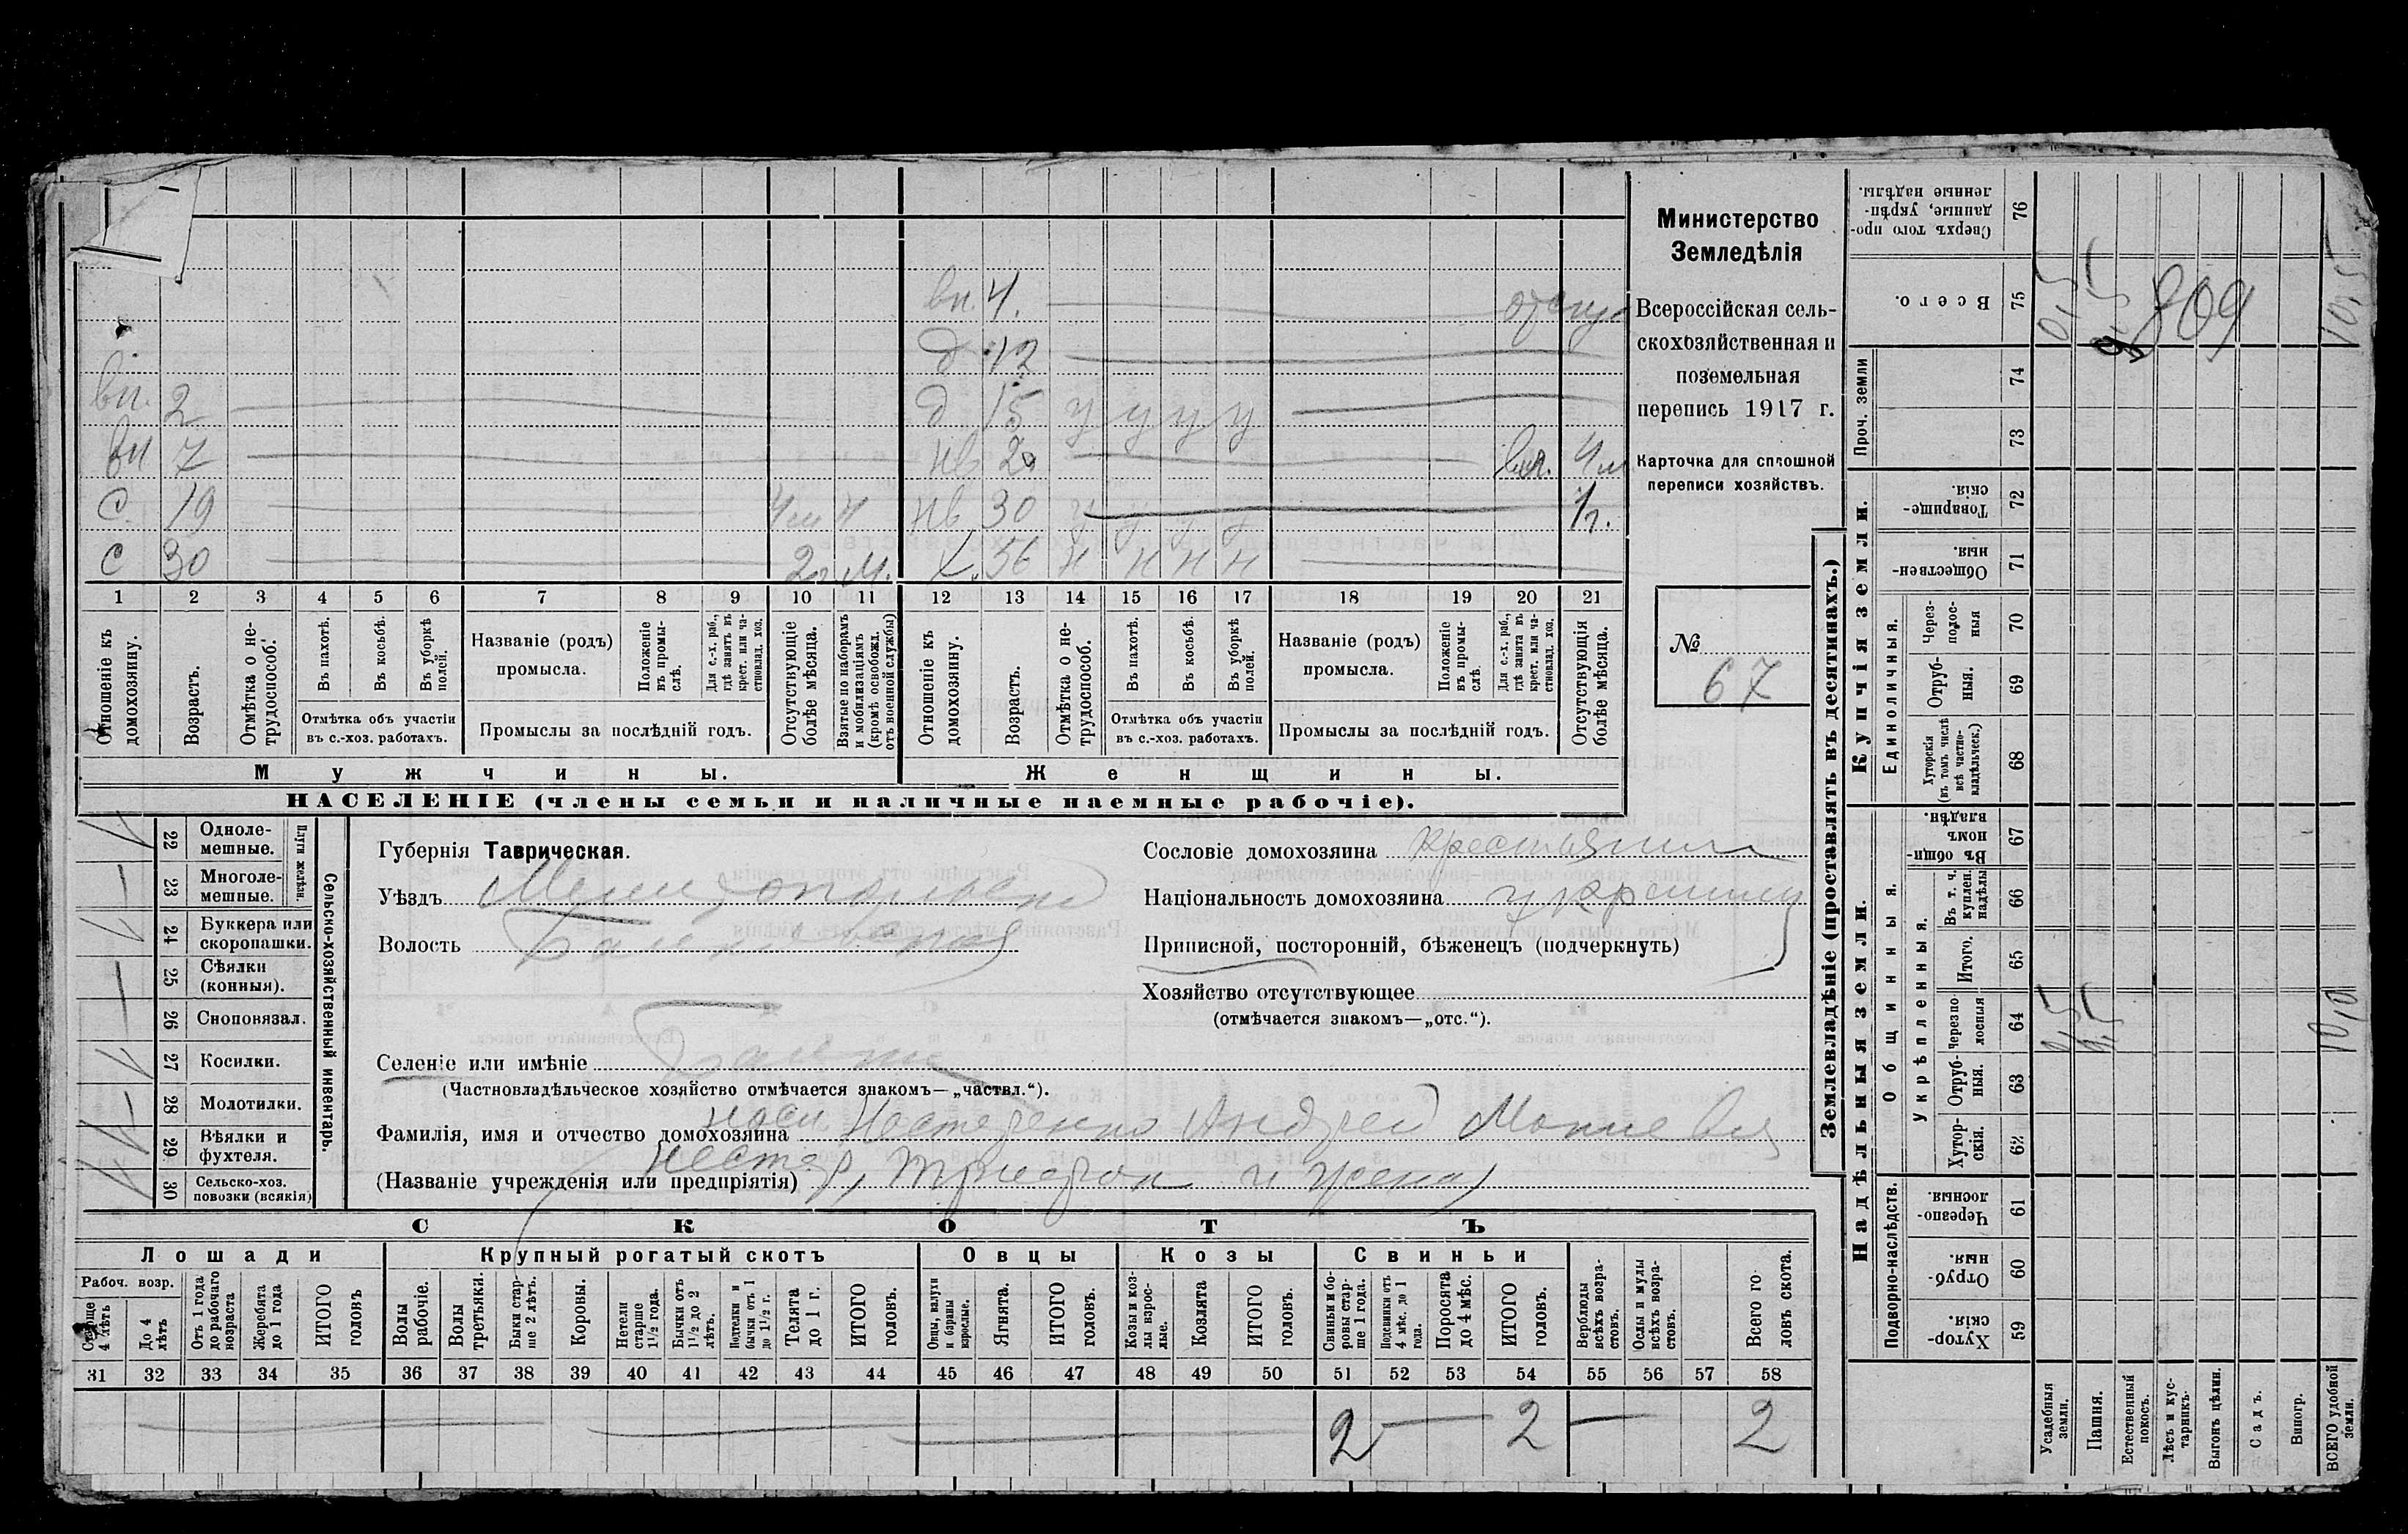 вн. 4. отсут
д 12
вн. 2 д 15 у у у у
вн 7 нв 20 4 м
С. 19 4 м нв 30 1 г.
С 30 2 г м. х. 56 н н н н
1 2 3 4 5 6 7 8 9 10 11 12 13 14 15 16 17 18 19 20 21
Отношеніе къ домохозяину.
Возрастъ.
Отмѣтка о не-трудоспособ.
Въ пахотѣ.
Въ косьбѣ.
Въ уборкѣ полей.
Отмѣтка объ участіи въ с.-хоз. работахъ.
Названіе (родъ) промысла.
Положеніе въ промы-слѣ.
Для с.-х. раб., гдѣ занятъ въ крест. или ча-стновлад. хоз.
Промыслы за послѣдній годъ.
Отсутствующіе болѣе мѣсяца.
Взятые по наборамъ и мобилизаціямъ (кромѣ освобожд. отъ военной службы)
Отношеніе къ домохозяину.
Возрастъ.
Отмѣтка о не-трудоспособ.
Въ пахотѣ.
Въ косьбѣ.
Въ уборкѣ полей.
Отмѣтка объ участіи въ с.-хоз. работахъ.
Названіе (родъ) промысла.
Положеніе въ промы-слѣ.
Для с.-х. раб., гдѣ занята въ крест. или ча-стновлад. хоз.
Промыслы за послѣдній годъ.
Отсутствующія болѣе мѣсяца.
Мужчины. Женщины.
НАСЕЛЕНІЕ (члены семьи и наличные наемные рабочіе).
Министерство
Земледѣлія
Всероссійская сель-
скохозяйственная и
поземельная
перепись 1917 г.
Карточка для сплошной
переписи хозяйствъ.
№
67
Сельско-хозяйственный инвентарь.
Плуги желѣзн.
22 Одноле-мешные.
23 Многоле-мешные.
24 Буккера или скоропашки.
25 Сѣялки (конныя).
26 Сноповязал.
27 Косилки.
28 Молотилки.
29 Вѣялки и фухтеля.
30 Сельско-хоз. повозки (всякія)
Губернія Таврическая.
Уѣздъ Мелитопольскі
Волость
Сословіе домохозяина крестьянин
Національность домохозяина украинец
Приписной, посторонній, бѣженецъ (подчеркнуть)
Хозяйство отсутствующее
(отмѣчается знакомъ—„отс.“).
Селеніе или имѣніе
(Частновладѣльческое хозяйство отмѣчается знакомъ—„частвл.“).
Фамилія, имя и отчество домохозяина Нестеренко Андрей
(Названіе учрежденія или предпріятія) и жена)
СКОТЪ
Лошади Крупный рогатый скотъ Овцы Козы Свиньи
Рабоч. возр.
Старше 4 лѣтъ
До 4 лѣтъ
Отъ 1 года до рабочаго возраста
Жеребята до 1 года
ИТОГО головъ
Волы рабочіе.
Волы третьяки.
Быки стар-ше 2 лѣтъ.
Коровы.
Нетели старше 1½ года.
Бычки отъ 1½ до 2 лѣтъ.
Подтелки и бычки отъ 1 до 1½ г.
Телята до 1 г.
ИТОГО головъ.
Овцы, валухи и бараны взрослые.
Ягнята.
ИТОГО головъ.
Козы и коз-лы взрос-лые.
Козлята
ИТОГО головъ.
Свиньи и бо-ровы стар-ше 1 года.
Подсвинки отъ 4 мѣс. до 1 года.
Поросята до 4 мѣс.
ИТОГО головъ.
Верблюды всѣхъ возра-стовъ.
Ослы и мулы всѣхъ возра-стовъ.
Всего го ловъ скота.
31 32 33 34 35 36 37 38 39 40 41 42 43 44 45 46 47 48 49 50 51 52 53 54 55 56 57 58
2 — 2 — 2
Землевладѣніе (проставлять въ десятинахъ.)
Надѣльныя земли.
Купчія земли.
Проч. земли
Подворно-наслѣдств.
Общинныя.
Укрѣпленныя.
Единоличныя.
Хутор-скія. 59
Отруб-ныя. 60
Черезпо-лосныя 61
Хутор-скія. 62
Отруб-ныя. 63
Черезпо-лосныя 64
Итого. 65
Въ т. ч. куплен. надѣлы 66
Въ общи-номъ владѣн. 67
Хуторскія (въ томъ числѣ всѣ частно-владѣльческ.) 68
Отруб-ныя. 69
Через-полос-ныя 70
Обществен-ныя. 71
Товарище-скія. 72
73
74
Всего. 75
Сверхъ того про-данные, укрѣп-ленные надѣлы. 76
0,5 9,5 10,5
809
0,5 9,5 10,0
Усадебныя земли.
Пашня.
Естественный покосъ.
Лѣсъ и кус-тарникъ.
Выгонъ цѣлин.
Садъ.
Виногр.
ВСЕГО удобной земли.